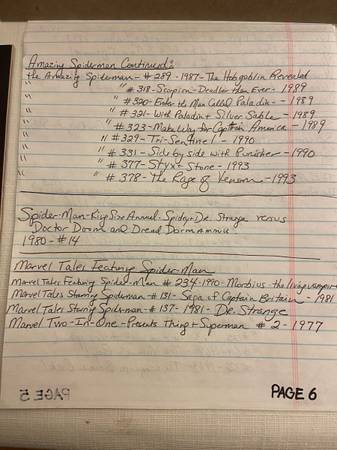 Amazing Spiderman Continued:
the Amazing Spiderman - # 289 - 1987 - The Hobgoblin Revealed
" " # 318 - Scorpion - Deadlier than Ever - 1989
" " # 320 - Enter the Man Called Paladin - - 1989
" " # 321 - With Paladin + Silver Sable - 1989
" " # 323 - Make Way for Captain America - - 1989
" " # 329 - Tri-Sentinel - 1990
" " # 331 - Side by side with Punisher - 1990
" " # 377 - Styx + Stone - 1993
" " # 378 - The Rage of Venom - 1993
Spider-Man - King Size Annual - Spidey + Dr. Strange versus
Doctor Doom and Dread Dormammu
1980 - # 14
Marvel Tales Featuring Spider-Man
Marvel Tales Featuring Spider-Man # 234 - 1990 - Morbius the living vampire
Marvel Tales Starring Spiderman # 131 - Saga of Captain Britain - 1981
Marvel Tales Starring Spider-man # 137 - 1981 - Dr. Strange
Marvel Two-In-One - Presents Thing + Superman # 2 - 1977
PAGE 5
PAGE 6